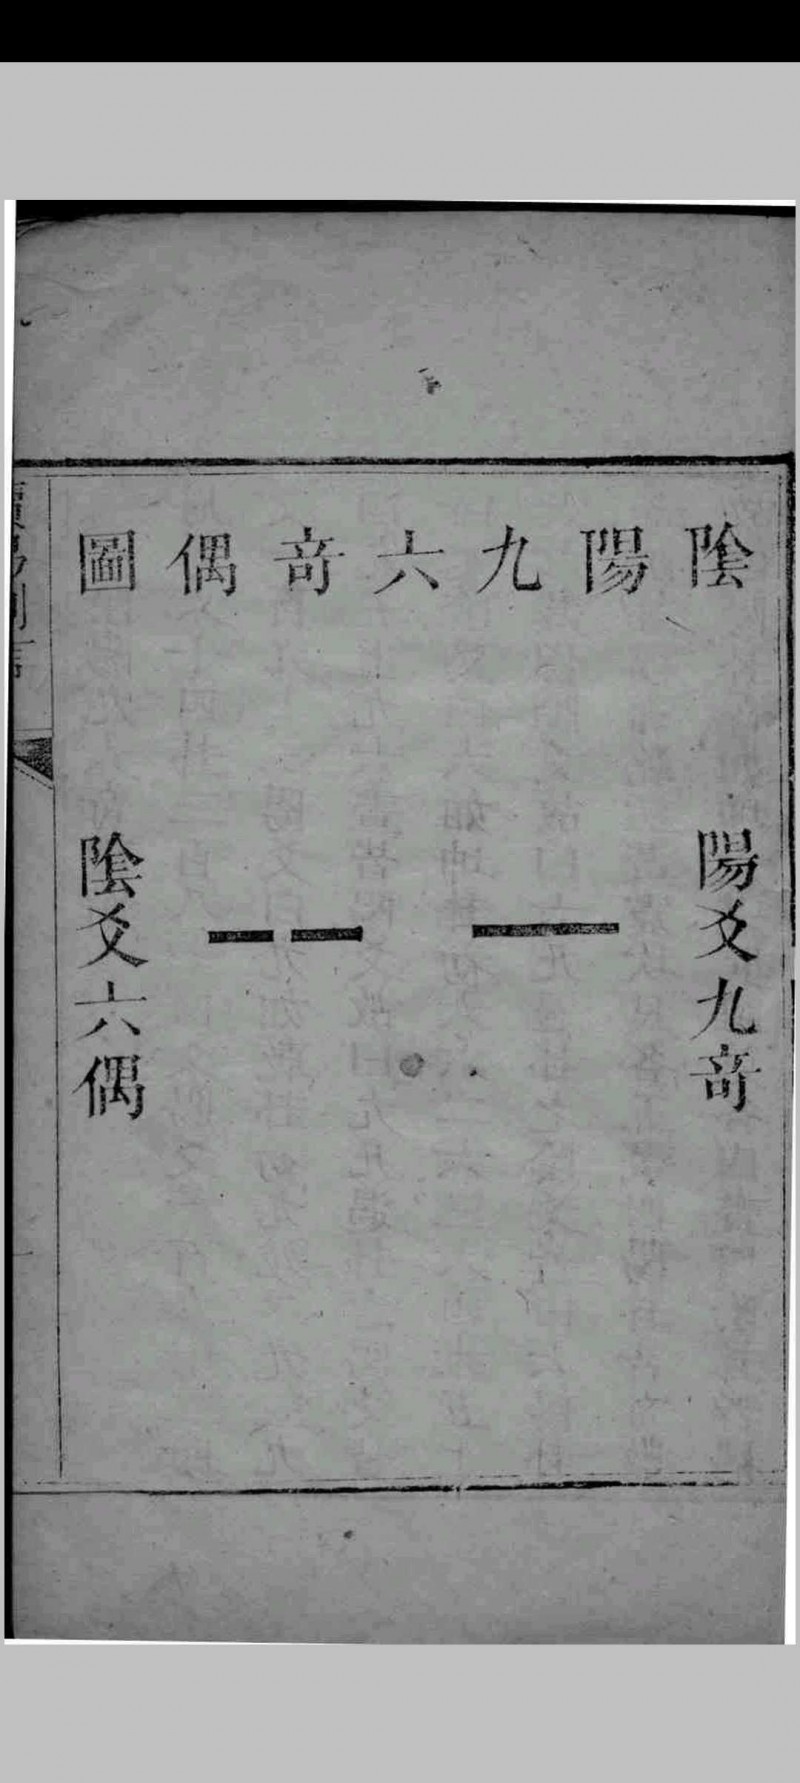 陰陽九六奇偶圖
陽爻九奇
陰爻六偶